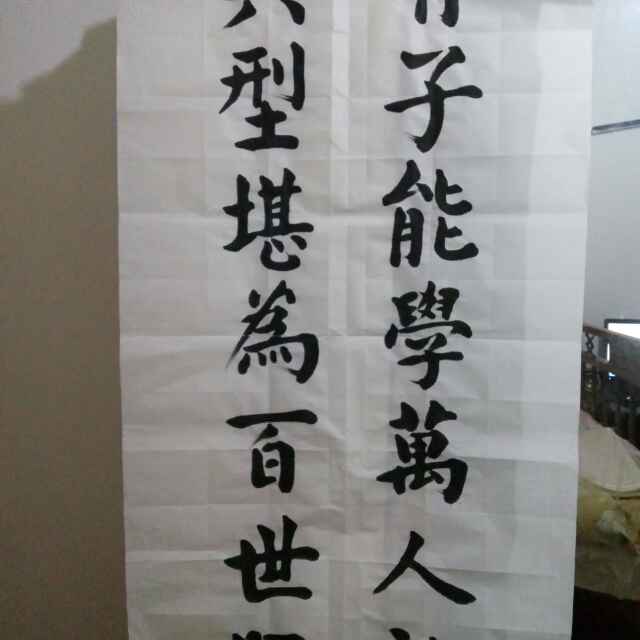 子能學萬人
型堪為百世